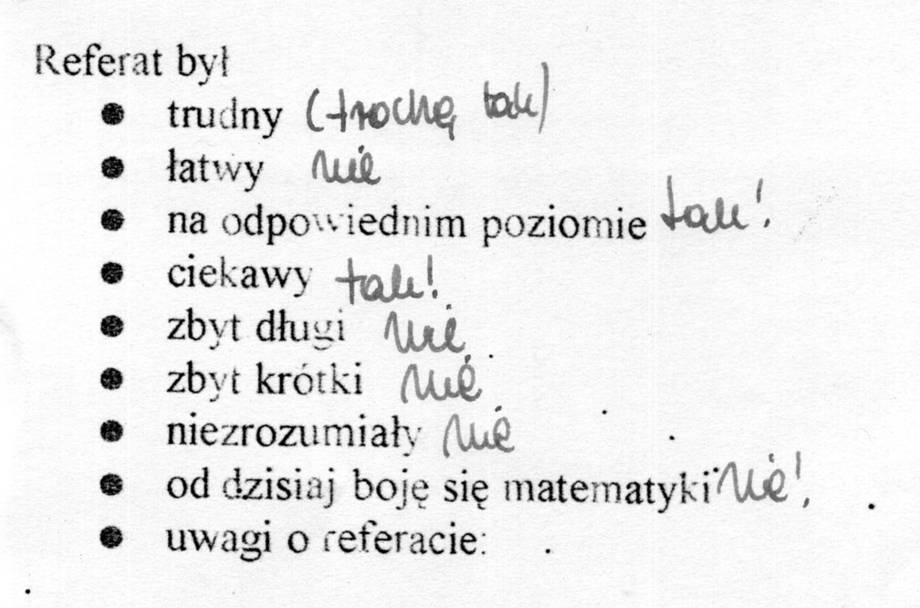 Referat był
• trudny (trochę tak)
• łatwy nie
• na odpowiednim poziomie tak!
• ciekawy tak!
• zbyt długi nie
• zbyt krótki nie
• niezrozumiały nie
• od dzisiaj boję się matematyki nie!
• uwagi o referacie: